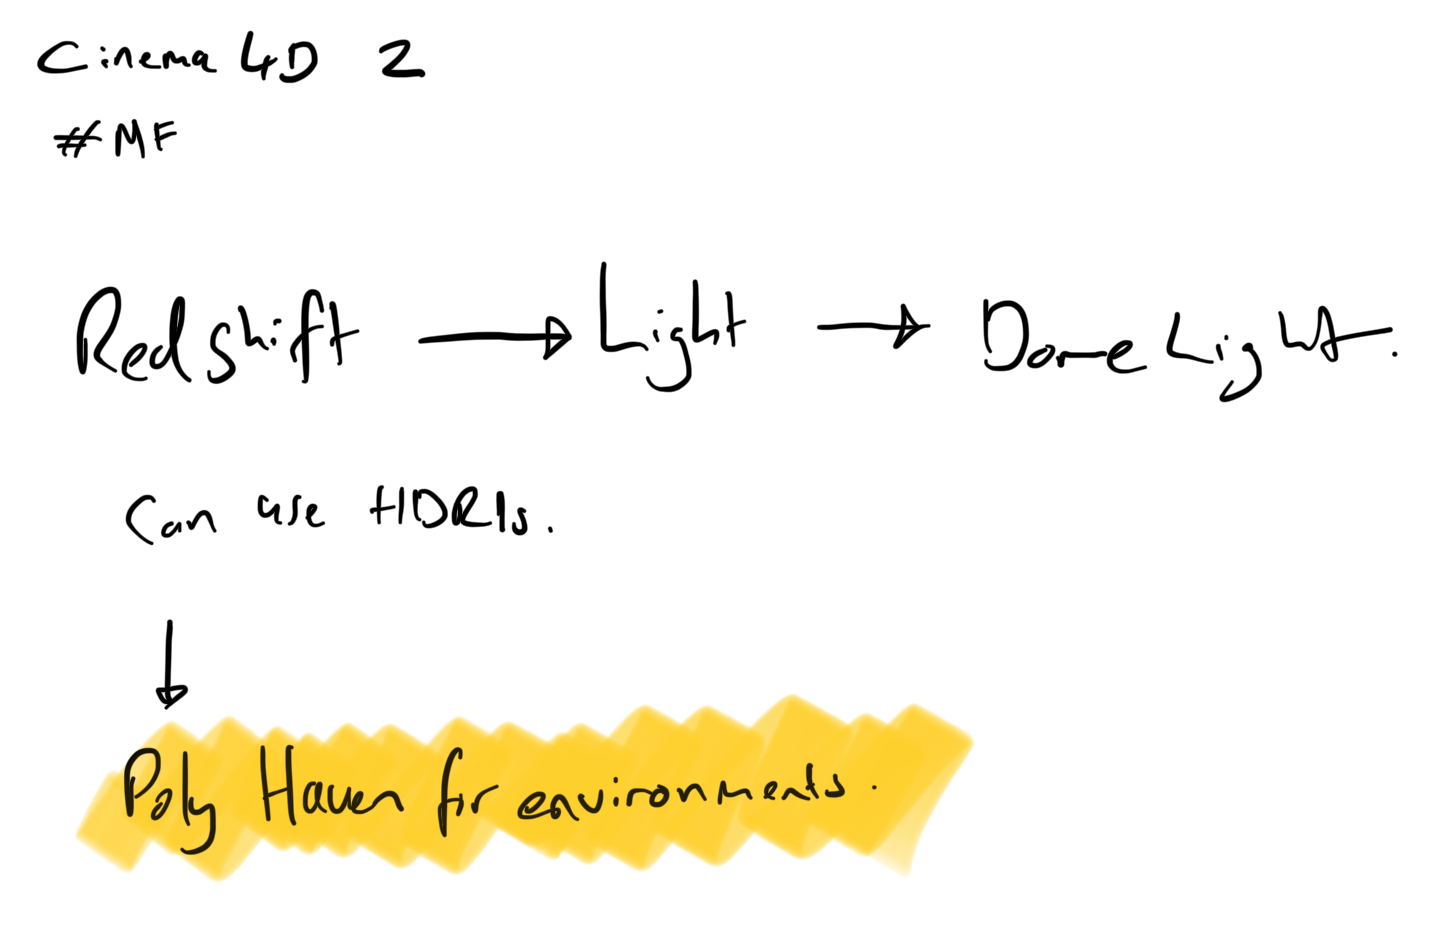 Cinema 4D 2
#MF
Redshift → Light → Dome Light.
Can use HDRIs.
↓
Poly Haven for environments.